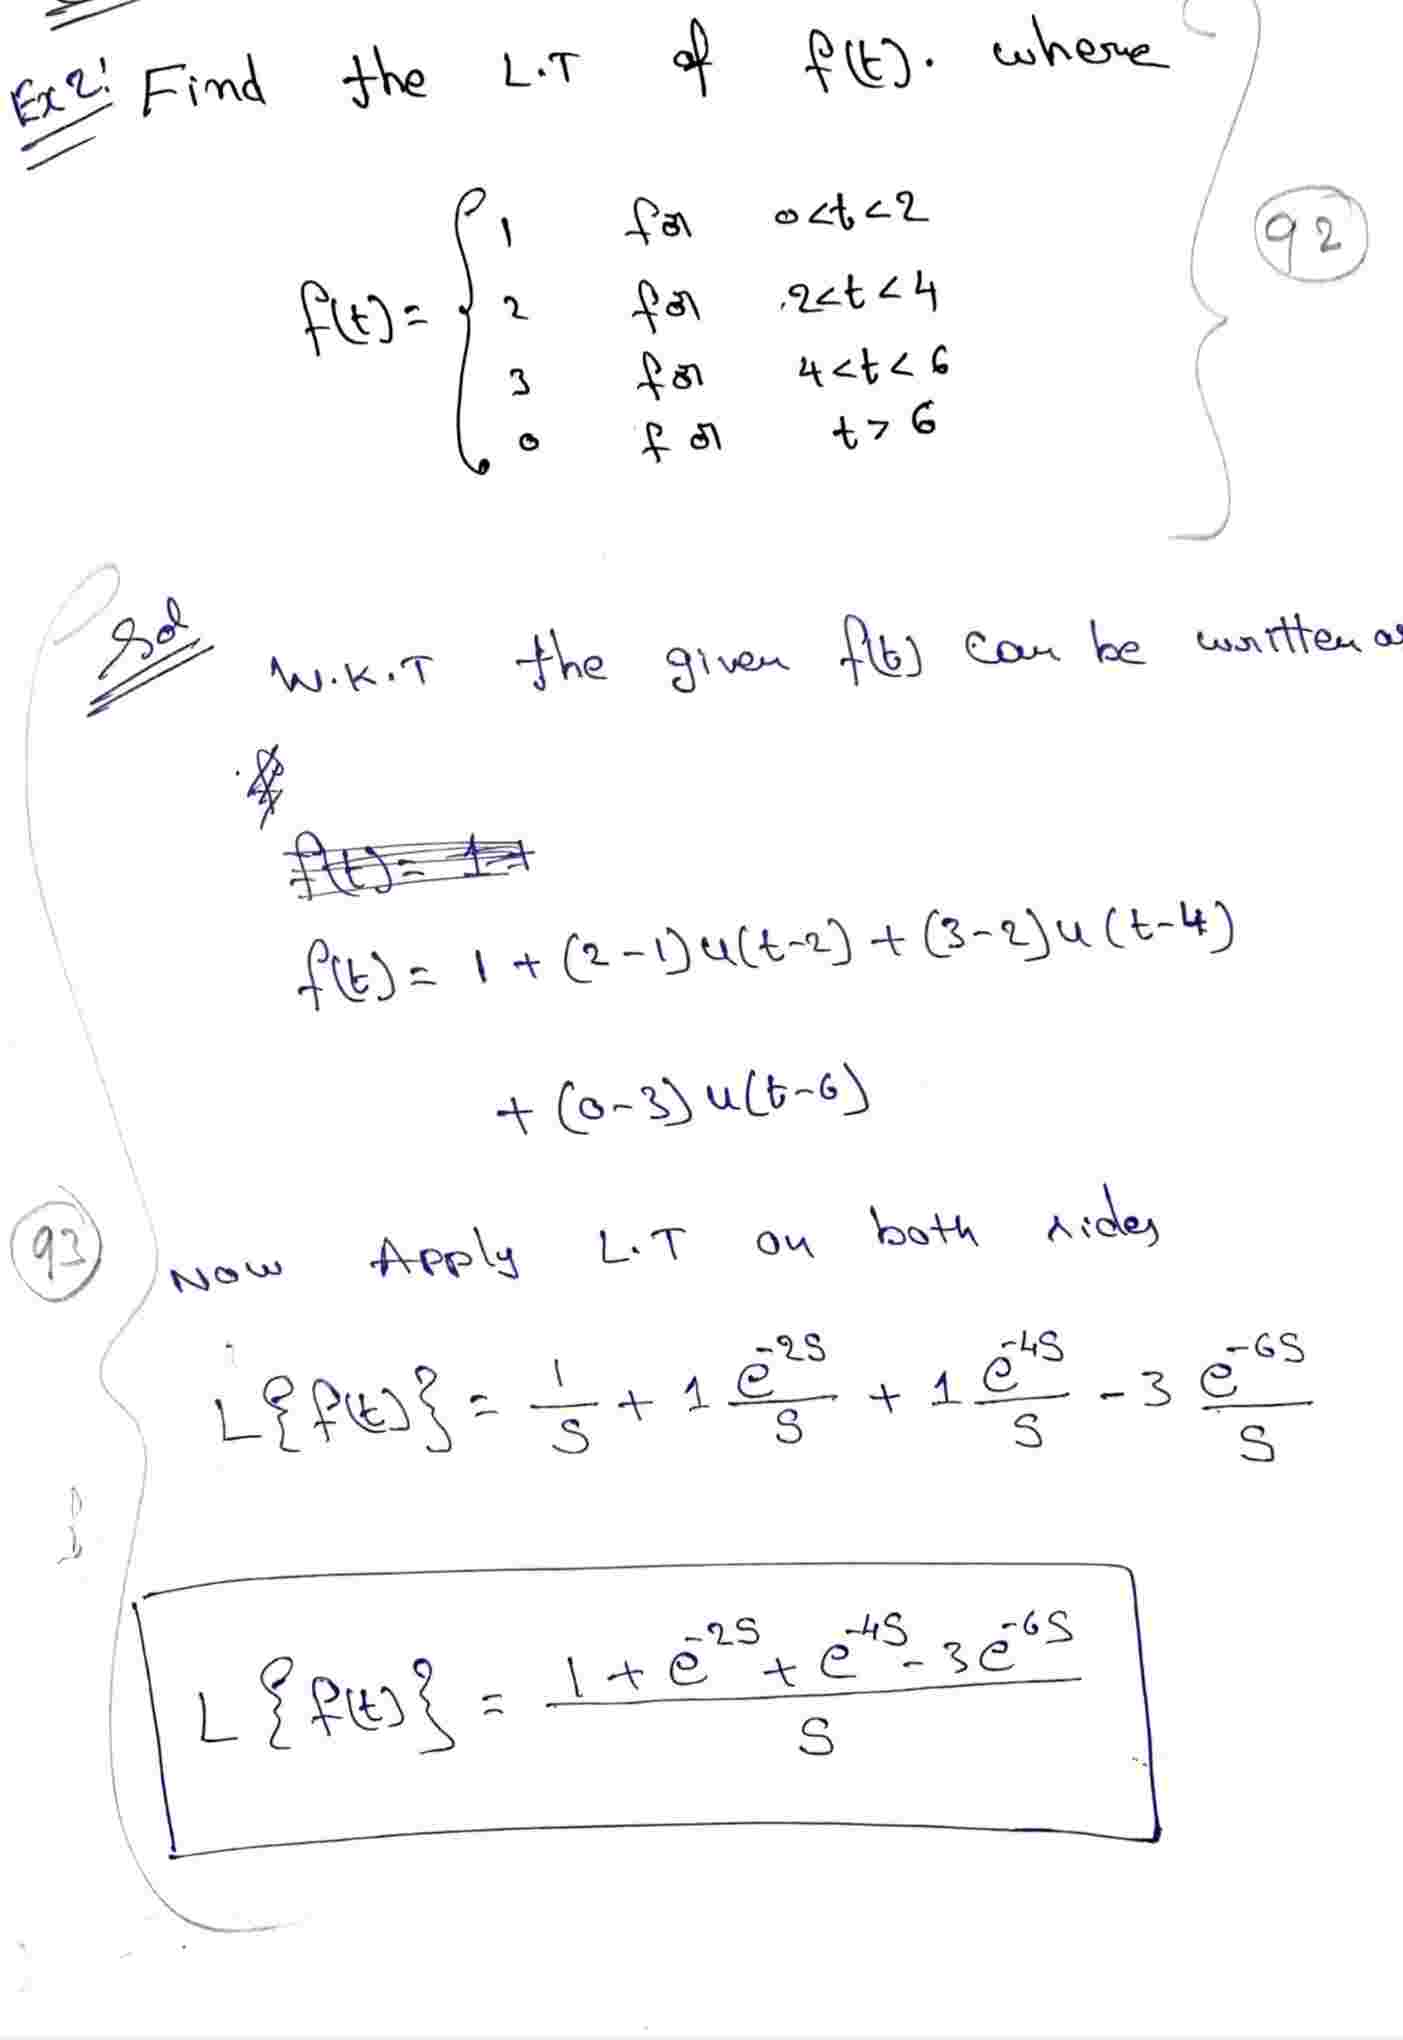 Ex 2: Find the L.T of f(t). where
f(t) = { 1 for 0<t<2
2 for 2<t<4
3 for 4<t<6
0 for t>6
92
Sol W.K.T the given f(t) can be written as
f(t) = 1+
f(t) = 1 + (2-1)u(t-2) + (3-2)u(t-4)
+ (0-3)u(t-6)
93
Now Apply L.T on both sides
L{f(t)} = 1/S + 1 e^-2S/S + 1 e^-4S/S - 3 e^-6S/S
L{f(t)} = (1 + e^-2S + e^-4S - 3e^-6S)/S